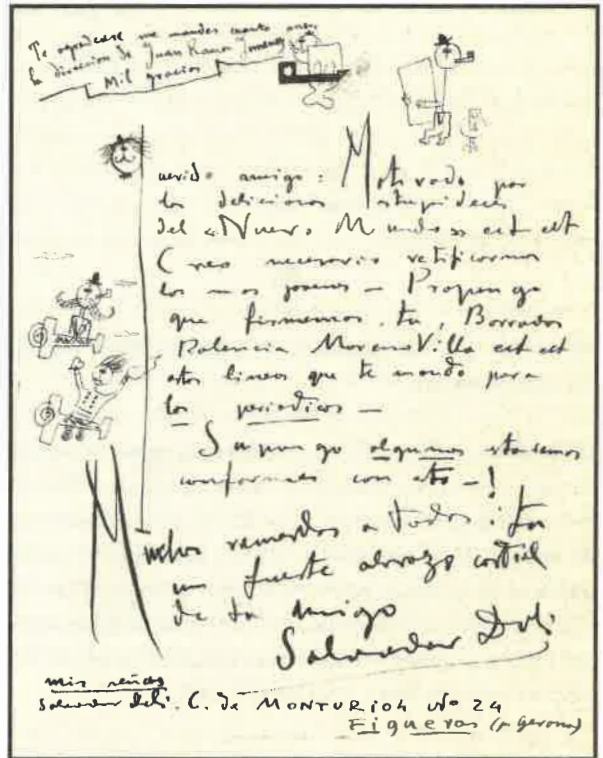 Te agradecere me mandes cuanto antes
la direccion de Juan Ramon Jimenez
Mil gracias
uerido amigo : Motivado por
las deliciosas stupideces
del «Nuevo Mundo» ect ect
Creo necesario retificarmos
los mas jovenes — Propongo
que firmemos, tu, Borrados
Palencia Moreno Villa ect ect
estas lineas que te mando para
los periodicos —
Supongo algunos estaremos
conformes con esto — !
Muchos recuerdos a todos : tu
un fuerte abrazo cordial
de tu amigo
Salvador Dali
mis señas
Salvador Dali. C. de MONTURIOL Nº 24
Figueras (p Gerona)